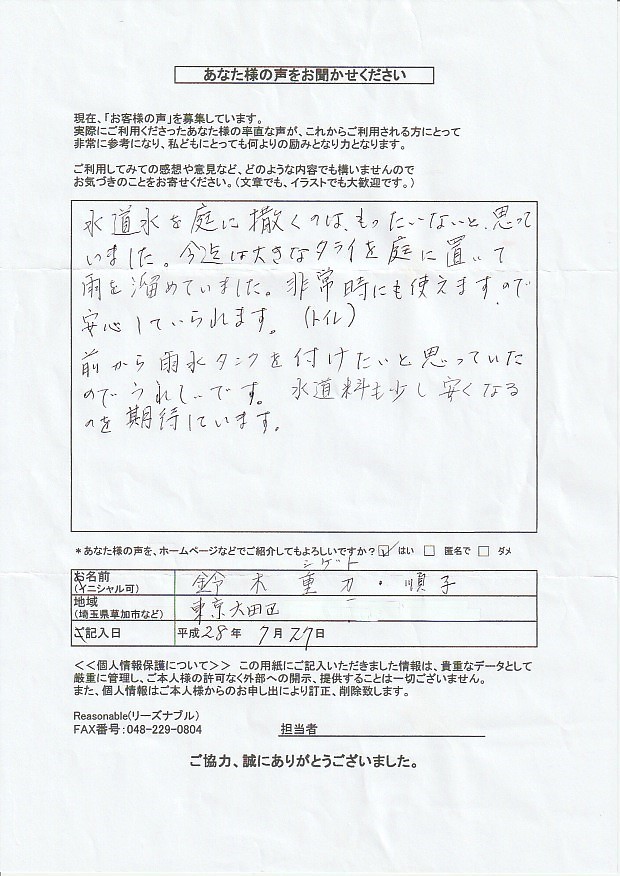 あなた様の声をお聞かせください
現在、「お客様の声」を募集しています。
実際にご利用くださったあなた様の率直な声が、これからご利用される方にとって
非常に参考になり、私どもにとっても何よりの励みとなり力となります。
ご利用してみての感想や意見など、どのような内容でも構いませんので
お気づきのことをお寄せください。（文章でも、イラストでも大歓迎です。）
水道水を庭に撒くのは、もったいないと、思って
いました。今迄は大きなタライを庭に置いて
雨を溜めていました。非常時にも使えますので
安心していられます。（トイレ）
前から雨水タンクを付けたいと思っていた
のでうれしいです。水道料も少し安くなる
のを期待しています。
＊あなた様の声を、ホームページなどでご紹介してもよろしいですか？ ☑ はい □ 匿名で □ ダメ
シゲト
お名前 鈴木 重刀・順子
（イニシャル可）
地域 東京大田区
（埼玉県草加市など）
ご記入日 平成28年 7月27日
＜＜個人情報保護について＞＞ この用紙にご記入いただきました情報は、貴重なデータとして
厳重に管理し、ご本人様の許可なく外部への開示、提供することは一切ございません。
また、個人情報はご本人様からのお申し出により訂正、削除致します。
Reasonable(リーズナブル)
FAX番号：048-229-0804 担当者
ご協力、誠にありがとうございました。